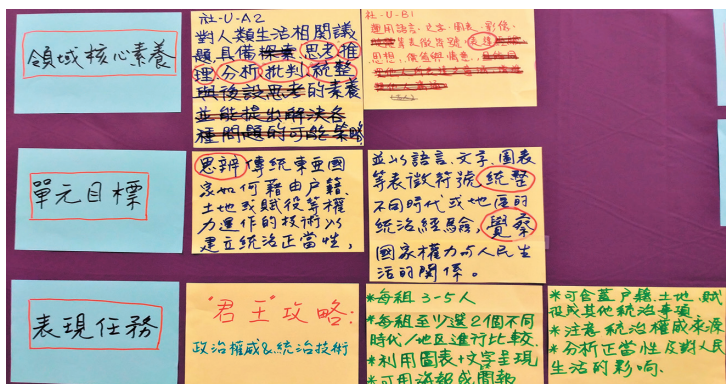 領域核心素養
社-U-A2
對人類生活相關議
題,具備探索、思考、推
理、分析、批判、統整
與後設思考的素養
並能提出解決各
種問題的可能策略
社-U-B1
運用語言、文字、圖表、影像、
等表徵符號,表達
思想、價值與情意,
單元目標
思辨傳統東亞國
家如何藉由戶籍、
土地或賦役等權
力運作的技術以
建立統治正當性,
並以語言、文字、圖表
等表徵符號統整
不同時代或地區的
統治經驗,覺察
國家權力与人民生
活的關係。
表現任務
"君王"攻略:
政治權威&統治技術
*每組3-5人
*每組至少選2個不同
時代/地区進行比較.
*利用圖表+文字呈現
*可用海報或簡報
*可含蓋戶籍、土地、賦
役或其他統治事項.
*注意統治權威來源
*分析正當性及對人民
生活的影响.